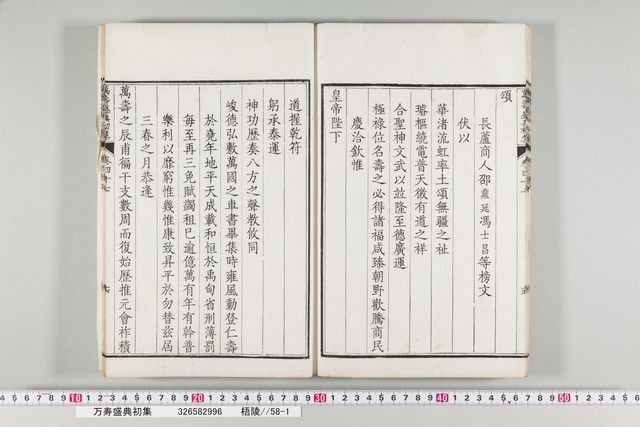 頌
長蘆商人邵 延馮士昌等榜文
伏以
華渚流虹率土頌無疆之祉
璿樞繞電普天徵有道之祥
合聖神文武以竝隆至德廣運
極祿位名壽之必得諸福咸臻朝野歡騰商民
慶洽欽惟
皇帝陛下
道握乾符
躬承泰運
神功歷奏八方之聲教攸同
峻德弘敷萬國之車書畢集時雍風動登仁壽
於堯年地平天成載和恒於禹甸省刑薄罰
每至再三免賦蠲租巳逾億萬有年有幹普
樂利以靡窮惟幾惟康致昇平於勿替茲屆
三春之月恭逢
萬壽之辰甫徧干支數周而復始歷推元會祚積
万寿盛典初集 326582996 梧陵//58-1
10 20 30 40 50